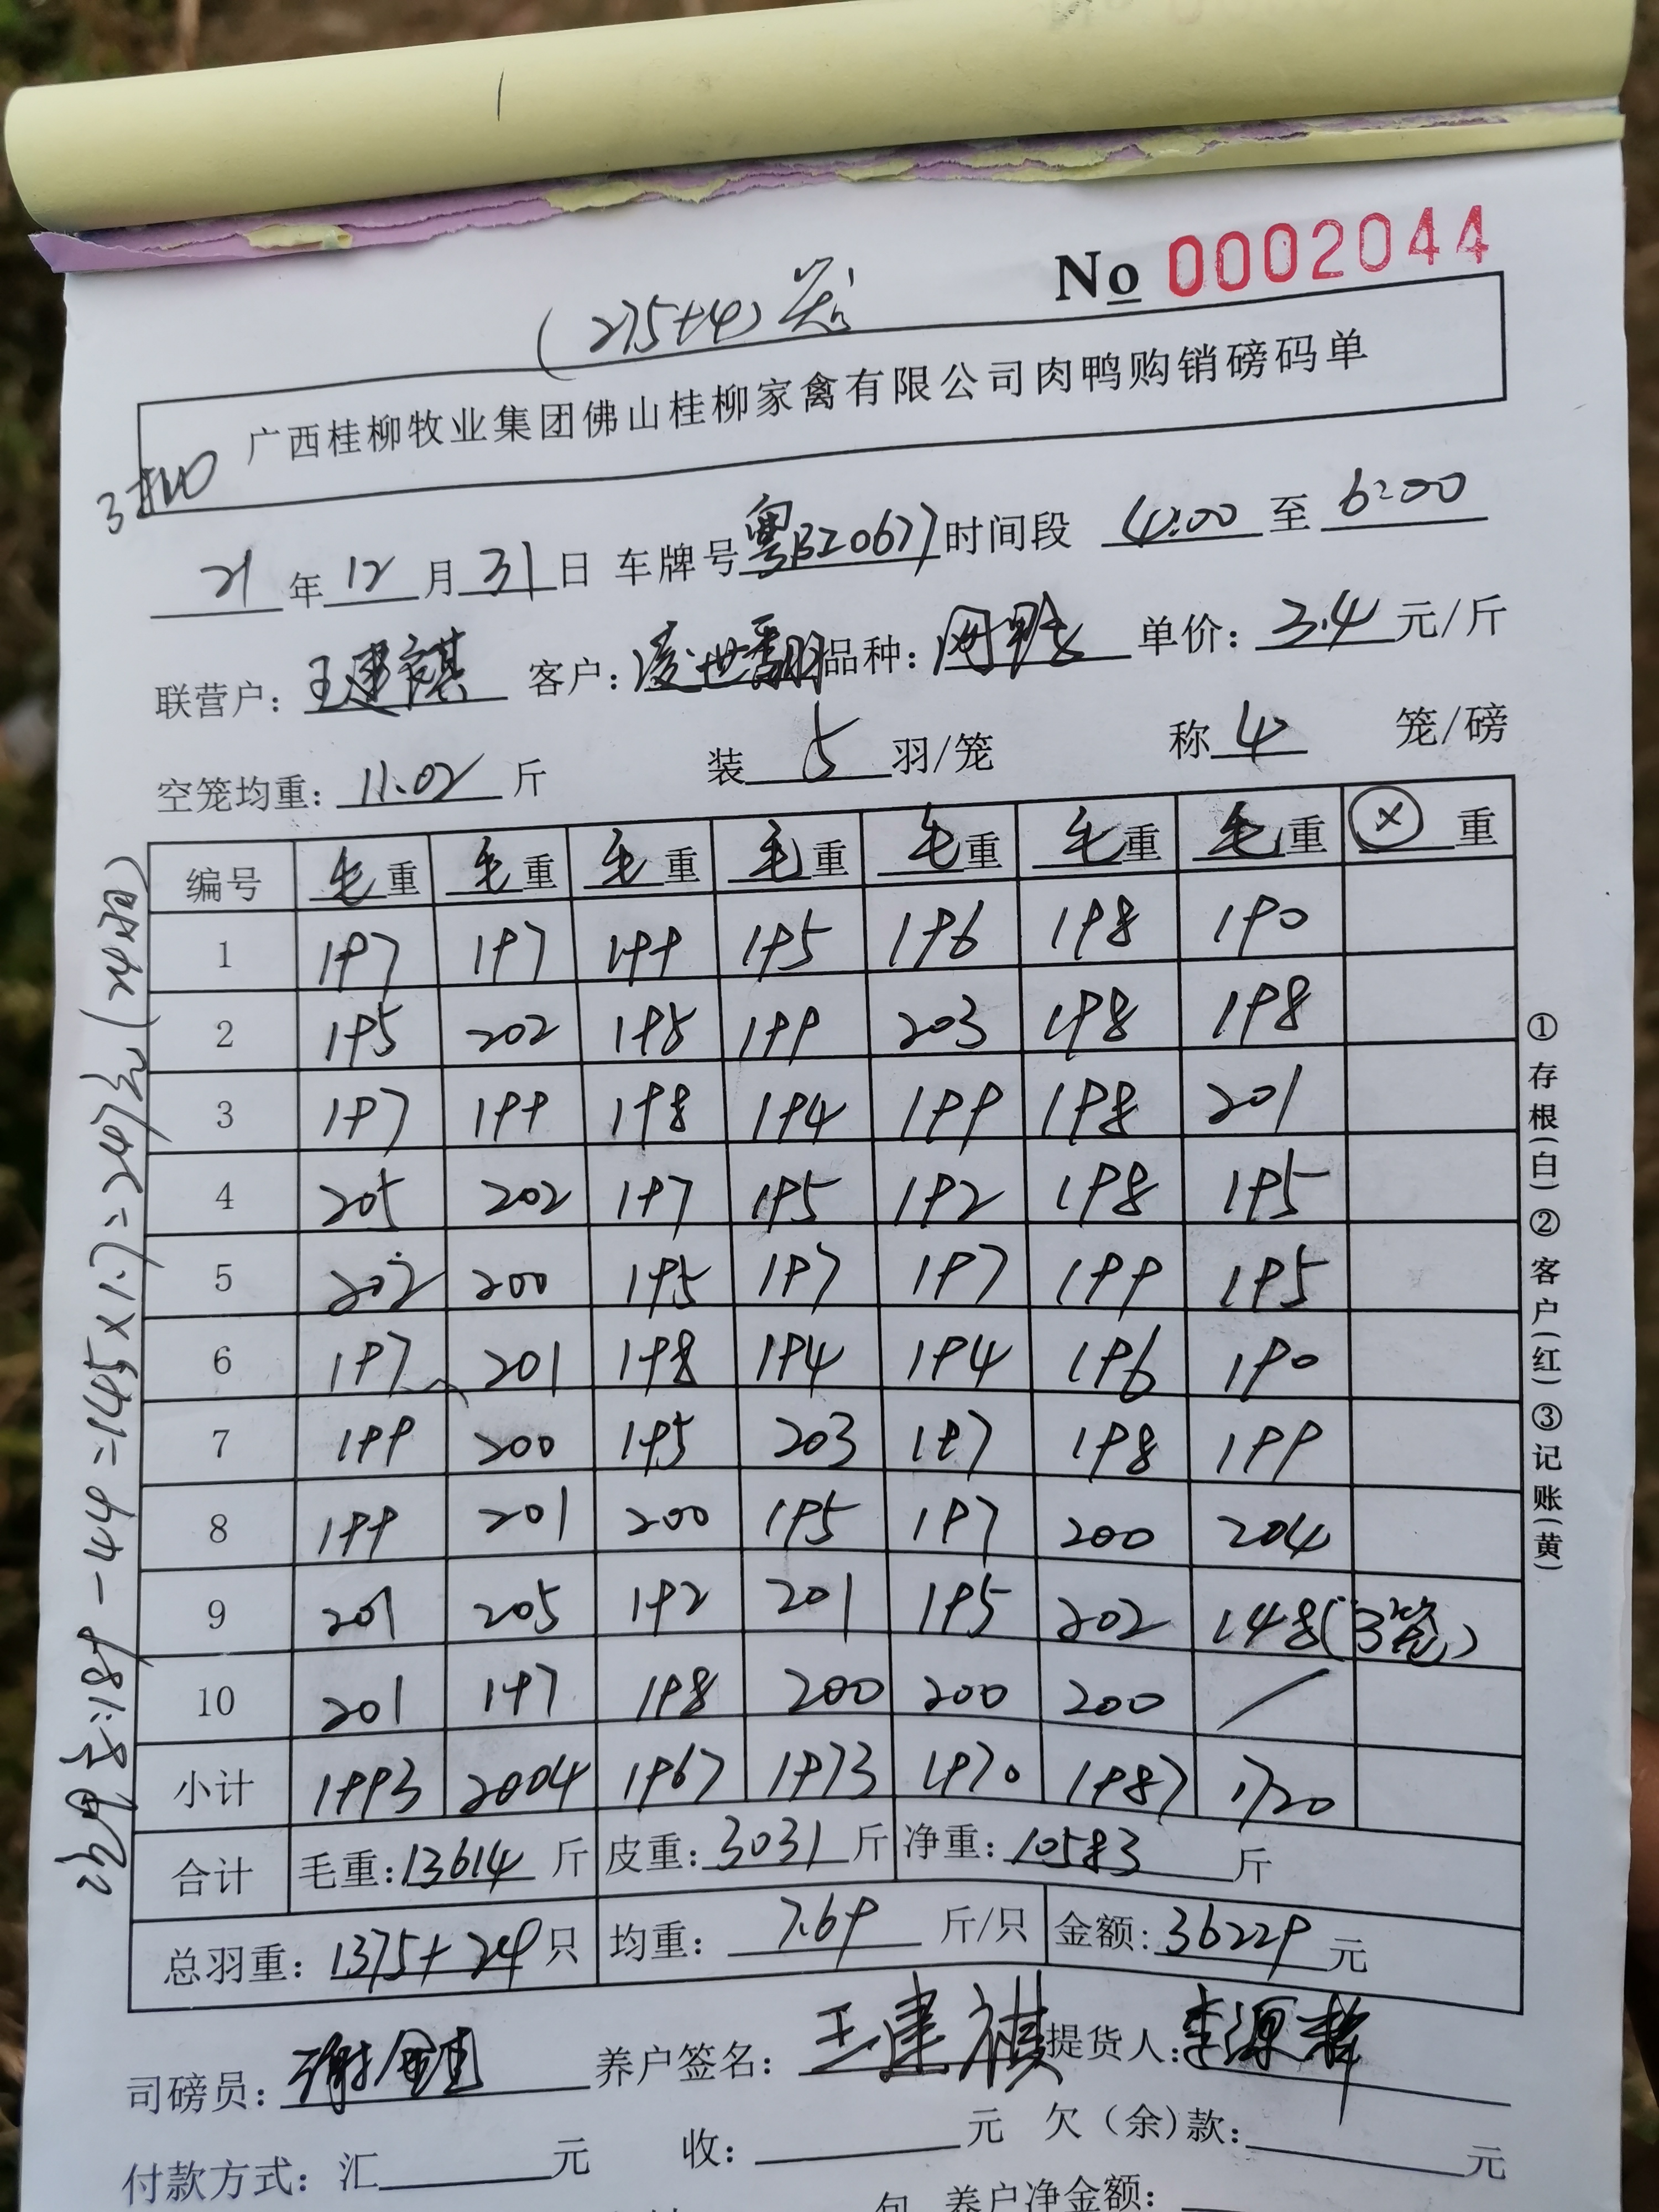 No 0002044
(275+4)笼
广西桂柳牧业集团佛山桂柳家禽有限公司肉鸭购销磅码单
3批
21年12月31日 车牌号粤BZ0677时间段 4:00至6:00
联营户:王建祺 客户:凌世翻 品种: 单价:3.4元/斤
空笼均重:11.02斤 装5羽/笼 称4笼/磅
编号 毛重 毛重 毛重 毛重 毛重 毛重 毛重 ⊗重
1 197 197 199 195 196 198 190
2 195 202 195 199 203 198 198
3 197 199 198 194 199 198 201
4 205 202 197 195 192 198 195
5 202 200 195 197 197 199 195
6 197 201 198 194 194 196 190
7 199 200 195 203 197 198 199
8 199 201 200 195 197 200 204
9 201 205 192 201 195 202 148(3笼)
10 201 197 198 200 200 200 /
小计 1993 2004 1967 1973 1970 1987 1720
合计 毛重:13614斤 皮重:3031斤 净重:10583斤
总羽重:1375+24只 均重:7.69斤/只 金额:36229元
司磅员: 养户签名:王建祺 提货人:李源辉
付款方式:汇 元 收: 元 欠(余)款: 元
养户净金额:
:189-44=145×1.7=247元(24只)
①存根(白)②客户(红)③记账(黄)